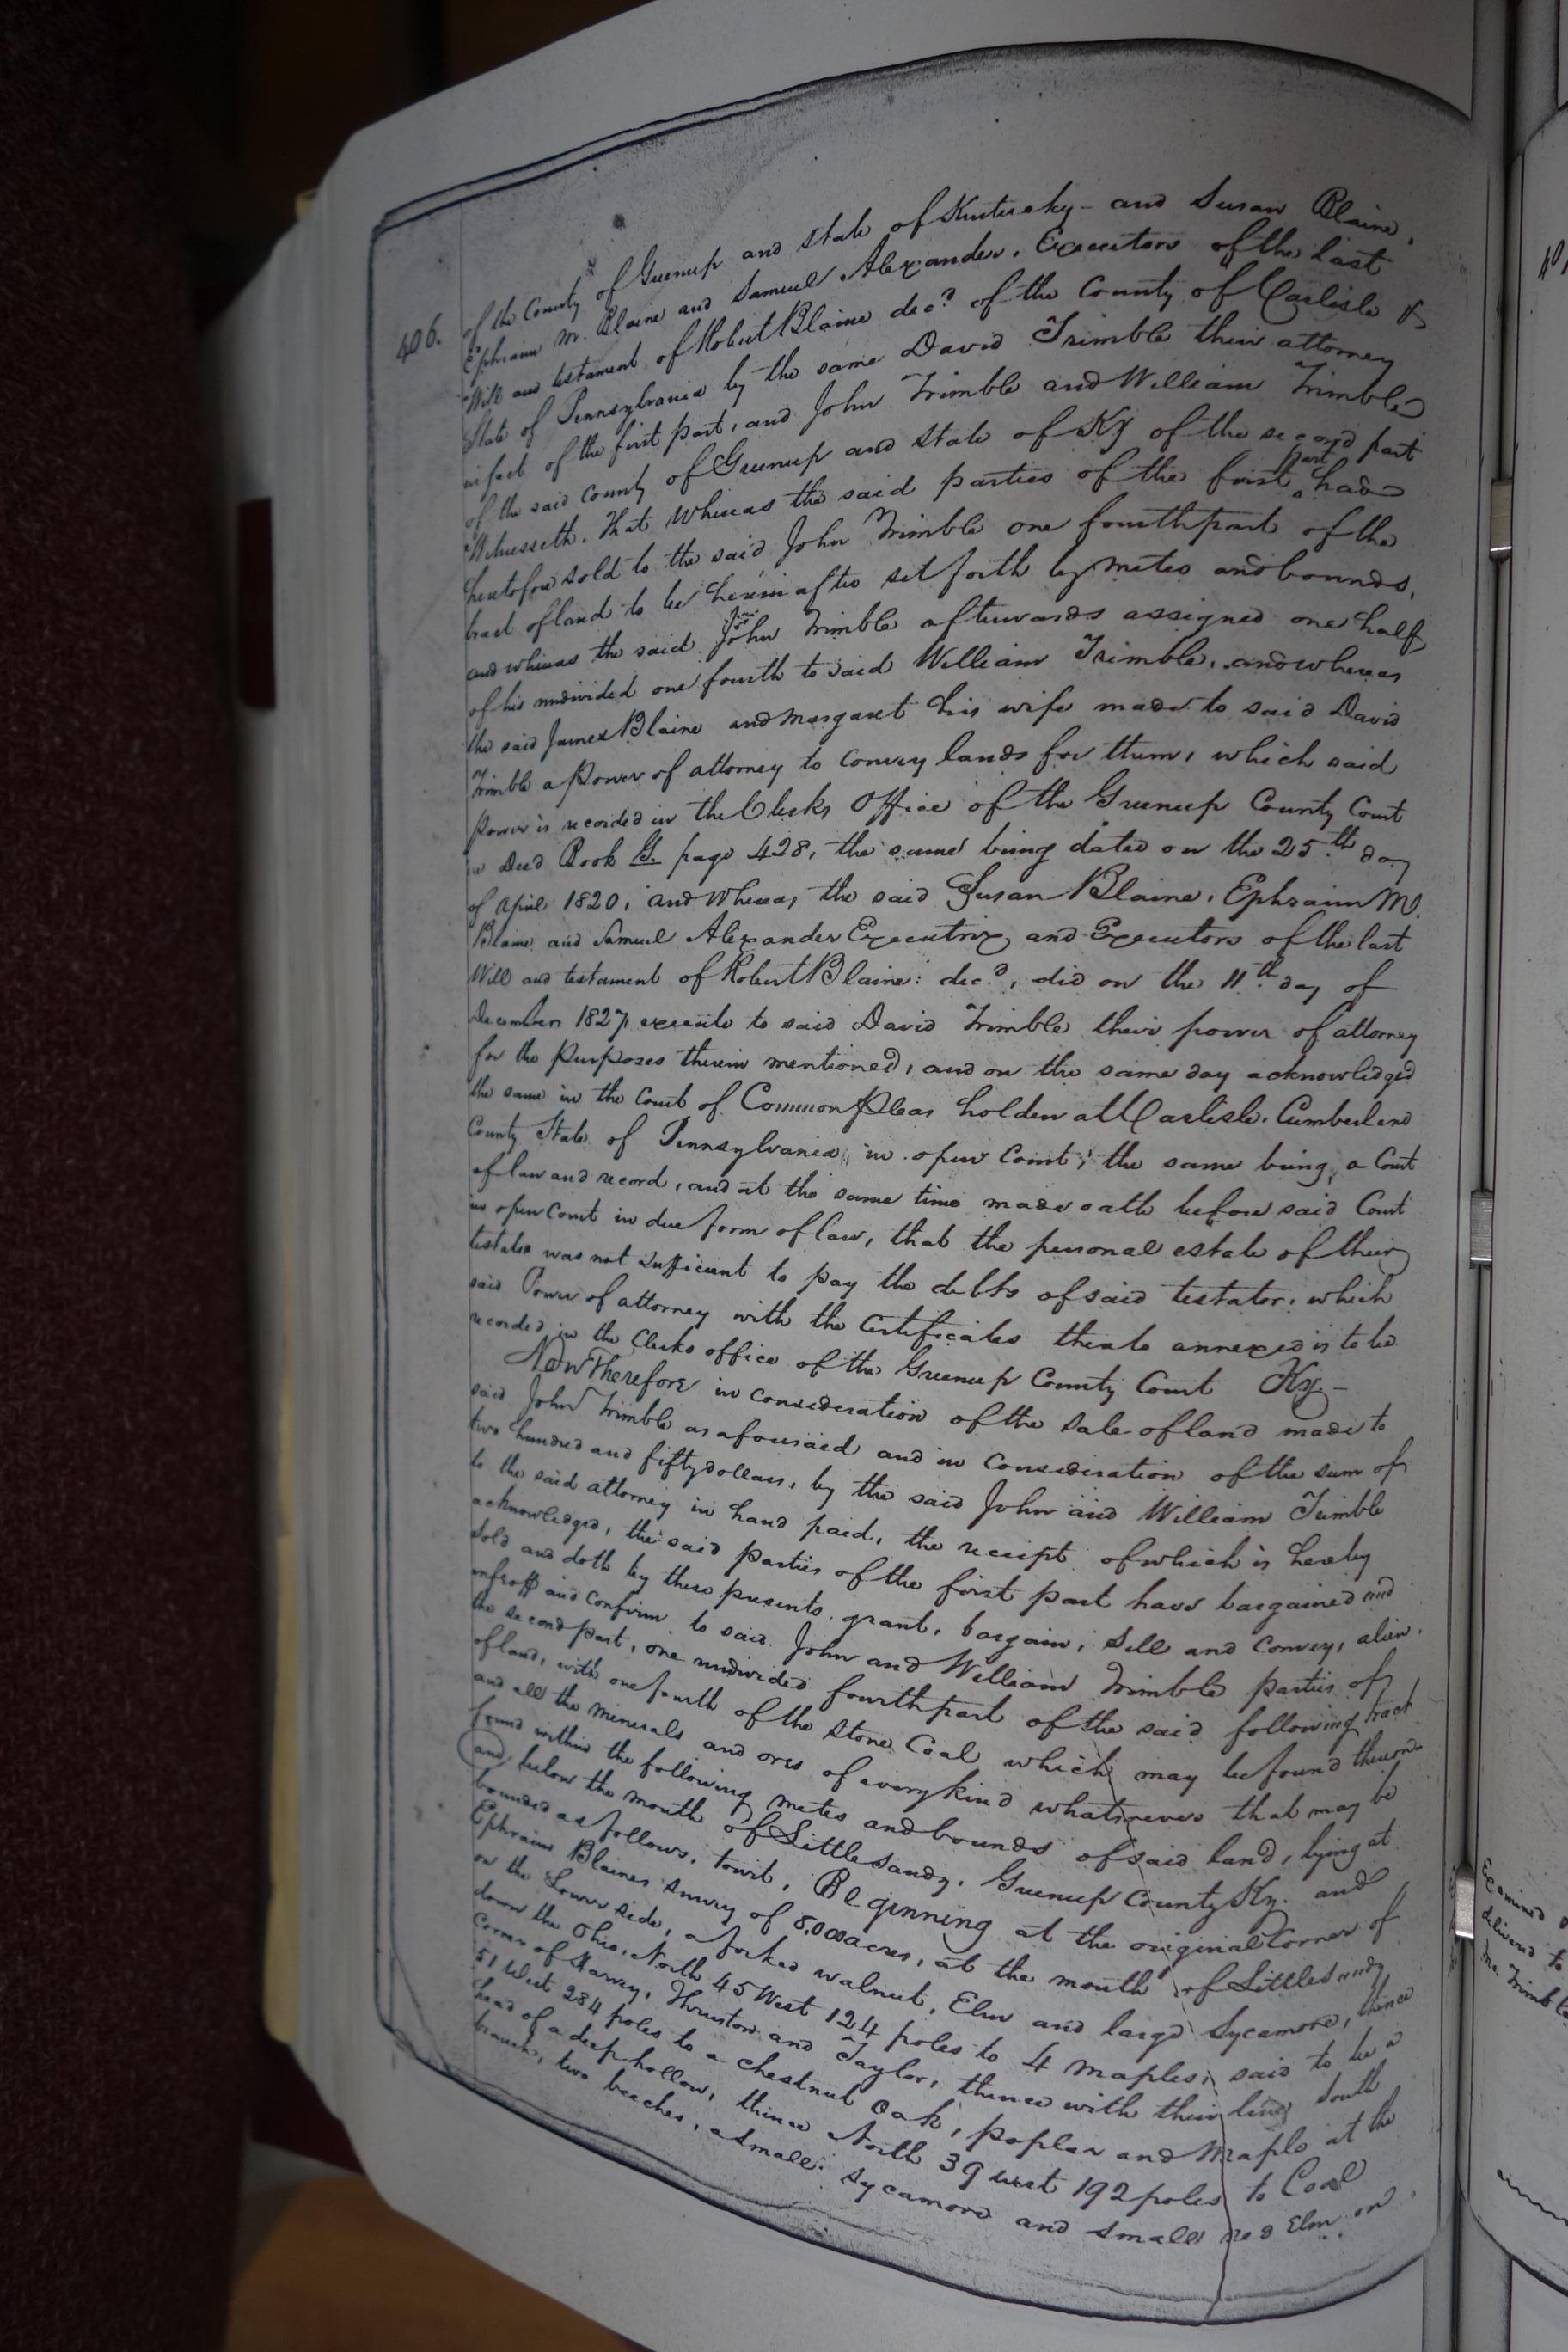 406.
of the County of Greenup and state of Kentucky - and Susan Blaine,
Ephraim M. Blaine and Samuel Alexander, Executors of the last
Will and testament of Robert Blaine decd. of the County of Carlisle &
State of Pennsylvania by the same David Trimble their attorney
in fact of the first part, and John Trimble and William Trimble
of the said County of Greenup and State of Ky of the second part
Witnesseth, That whereas the said parties of the first part had
heretofore sold to the said John Trimble one fourth part of the
tract of land to be herein after set forth by metes and bounds,
and whereas the said John Trimble afterwards assigned one half
of his undivided one fourth to said William Trimble, and whereas
the said James Blaine and Margaret his wife made to said David
Trimble a Power of attorney to convey lands for them, which said
Power is recorded in the Clerks Office of the Greenup County Court
in Deed Book G. page 428, the same being dated on the 25th day
of April 1820, and Whereas, the said Susan Blaine, Ephraim M.
Blaine, and Samuel Alexander Executrix and Executors of the last
Will and testament of Robert Blaine: decd, did on the 11th day of
December 1827 execute to said David Trimble their power of attorney
for the Purposes therein mentioned, and on the same day acknowledged
the same in the Court of Common Pleas holden at Carlisle, Cumberland
County State of Pennsylvania, in open Court, the same being, a Court
of law and record, and at the same time made oath before said Court
in open Court in due form of law, that the personal estate of their
testator was not sufficient to pay the debts of said testator, which
said Power of attorney with the Certificates thereto annexed is to be
recorded in the Clerks office of the Greenup County Court Ky -
Now Therefore in consideration of the sale of land made to
said John Trimble as aforesaid and in consideration of the sum of
two hundred and fifty dollars, by the said John and William Trimble
to the said attorney in hand paid, the receipt of which is hereby
acknowledged, the said parties of the first part have bargained and
sold and doth by these presents, grant, bargain, sell and convey, alien,
enfeoff and confirm to said John and William Trimble parties of
the second part, one undivided fourth part of the said following tract
of land, with one fourth of the Stone Coal which may be found thereon
and all the minerals and ores of every kind whatsoever that may be
found within the following metes and bounds of said land, lying at
and below the mouth of Little Sandy, Greenup County Ky. and
bounded as follows, towit, Beginning at the original Corner of
Ephraim Blaines survey of 8.000 acres, at the mouth of Little Sandy
on the Lower side, a forked walnut, Elm and large Sycamore, thence
down the Ohio, North 45 West 124 poles to 4 maples, said to be a
corner of Harvey, Thruston and Taylor, thence with their line South
51 West 284 poles to a chestnut Oak, poplar and Maple at the
head of a deep hollow, thence North 39 west 192 poles to Coal
branch, two beeches, a small sycamore and small red Elm on
Examined
delivered to